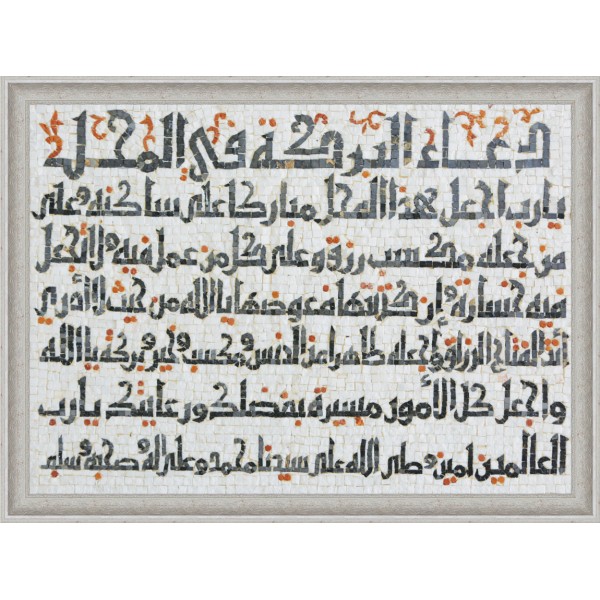 دعاء البركة في المحل
يارب اجعل هذا المحل مباركا على ساكنه وعلى
من جعله مكسب رزق وعلى كل من عمل فيه ولا تجعل
فيه خسارة وإن كتبتها معوضها يا الله من حيث لا أدري
أنت الفتاح الرزاق واجعله طاهرا من الدنس ومكسب وخير وبركة يا الله
واجعل كل الأمور ميسرة بفضلك ورعايتك يارب
العالمين امين وصلى الله على سيدنا محمد وعلى اله وصحبه وسلم